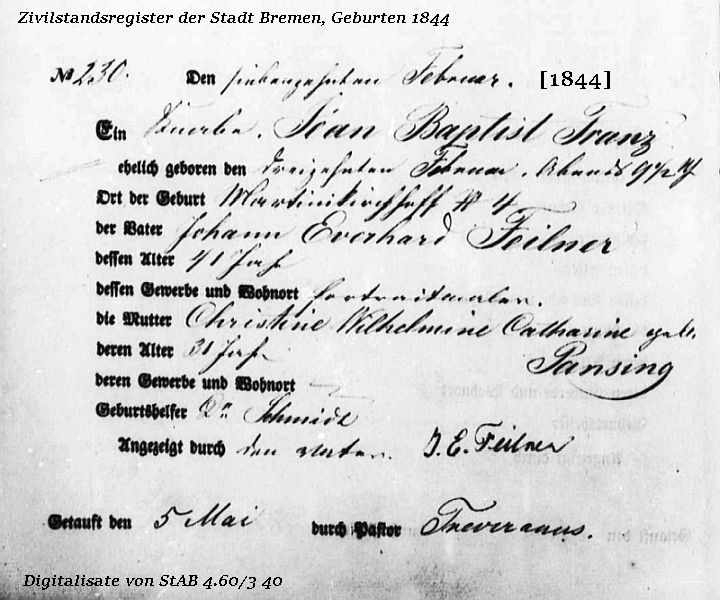 Zivilstandsregister der Stadt Bremen, Geburten 1844
No 230. Den siebenzehnten Februar. [1844]
Ein Knabe. Jean Baptist Franz
ehelich geboren den dreizehnten Februar. Abends 9 1/2 U
Ort der Geburt Martinikirchhoff # 4
der Vater Johann Everhard Feilner
dessen Alter 41 Jahr
dessen Gewerbe und Wohnort Portraitmaler.
die Mutter Christine Wilhelmine Catharine geb.
Pansing
deren Alter 31 Jahr
deren Gewerbe und Wohnort —
Geburtshelfer Dr. Schmidt
Angezeigt durch den Vater. J. E. Feilner
Getauft den 5 Mai durch Pastor Treviranus.
Digitalisate von StAB 4.60/3 40